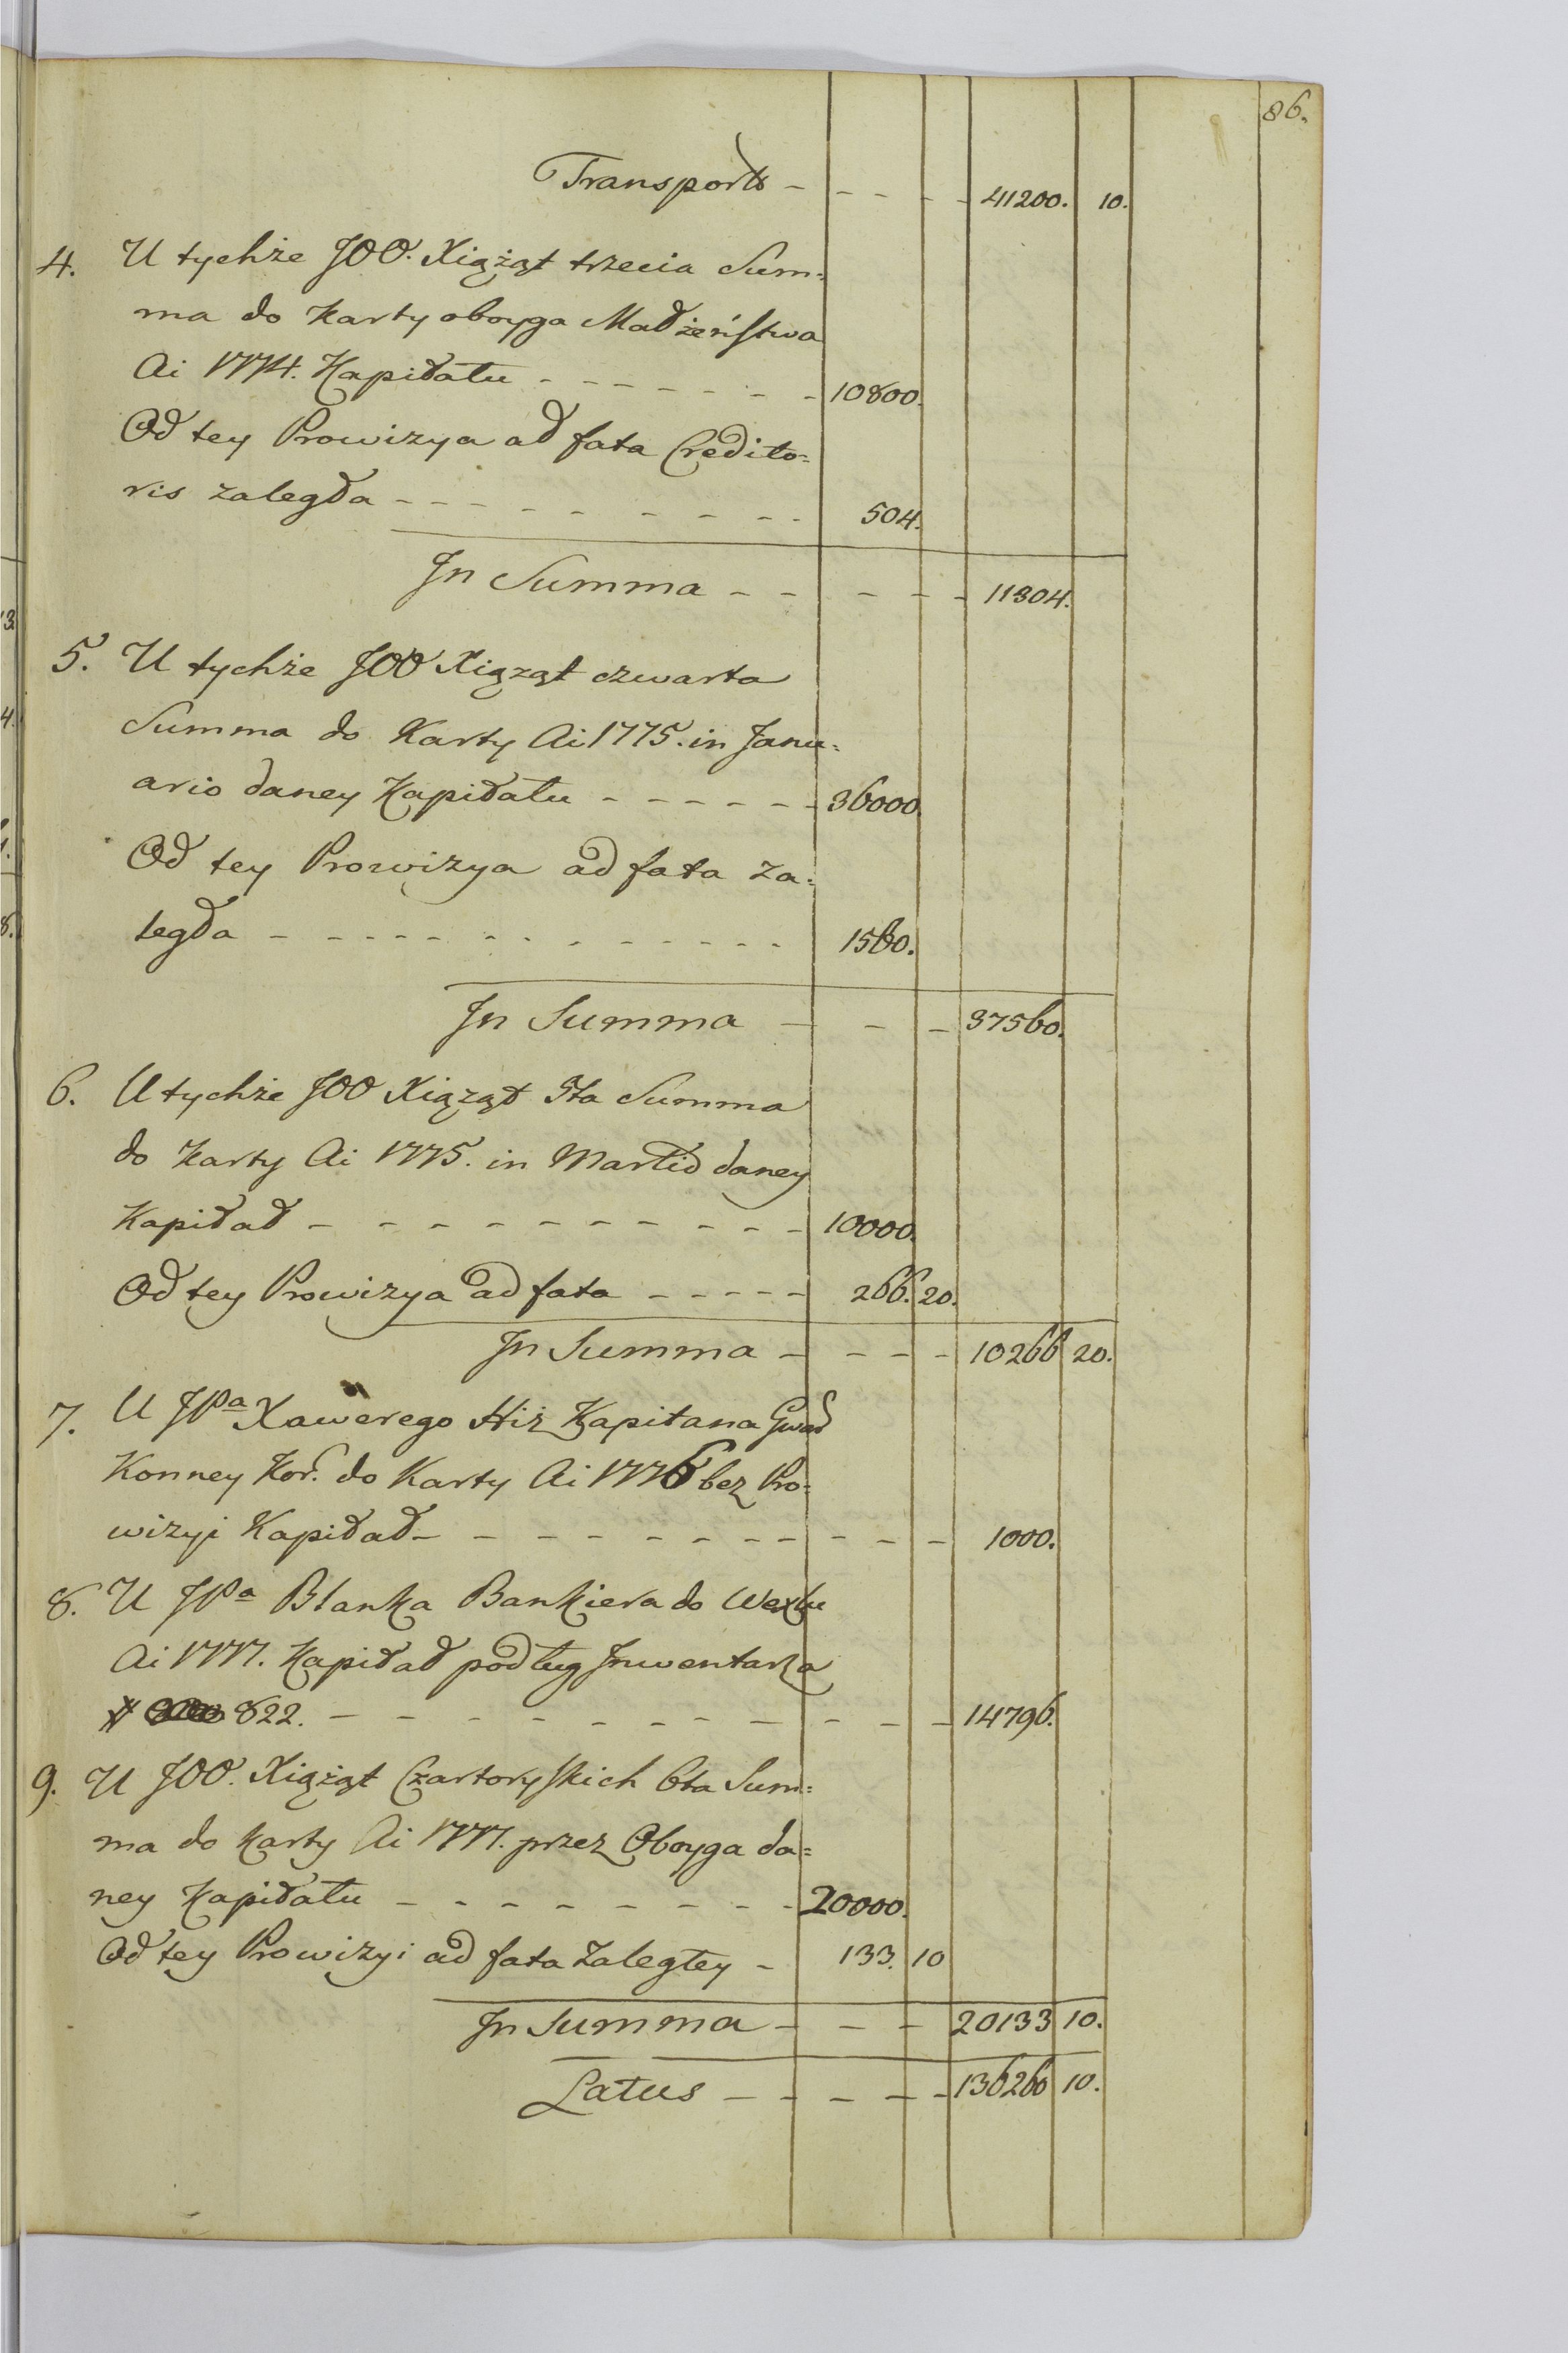 86.
Transport - - - - 41200. 10.
4. U tychże JOO. Xiążąt trzecia Sum=
ma do Karty oboyga Małżeństwa
Ai 1774. Kapitału - - - - - - 10800.
Od tey Prowizya ad fata Credito=
ris zaległa - - - - - - - - - 504.
In Summa - - - - - 11304.
5. U tychże JOO Xiążąt czwarta
Summa do Karty Ai 1775. in Janu=
ario daney Kapitału - - - - - - 36000.
Od tey Prowizya ad fata za=
legła - - - - - - - - - - - - 1560.
In Summa - - - 37560.
6. U tychże JOO Xiążąt 5ta Summa
do Karty Ai 1775. in Martio daney
Kapitał - - - - - - - - - - 10000.
Od tey Prowizya ad fata - - - - - 266. 20.
In Summa - - - - 10266 20.
7. U JPa Xawerego Hiż Kapitana Gwar
Konney Kor. do Karty Ai 1776 bez Pro=
wizyi Kapitał - - - - - - - - - - 1000.
8. U JPa Blanka Bankiera do Wexlu
Ai 1777. Kapitał podług Inwentarza
# 822. - - - - - - - - - - - 14796.
9. U JOO. Xiążąt Czartoryskich 6ta Sum=
ma do Karty Ai 1777. przez Oboyga da=
ney Kapitału - - - - - - - - 20000.
Od tey Prowizyi ad fata zaległey - 133. 10
In Summa - - - 20133 10.
Latus - - - - - 136260 10.